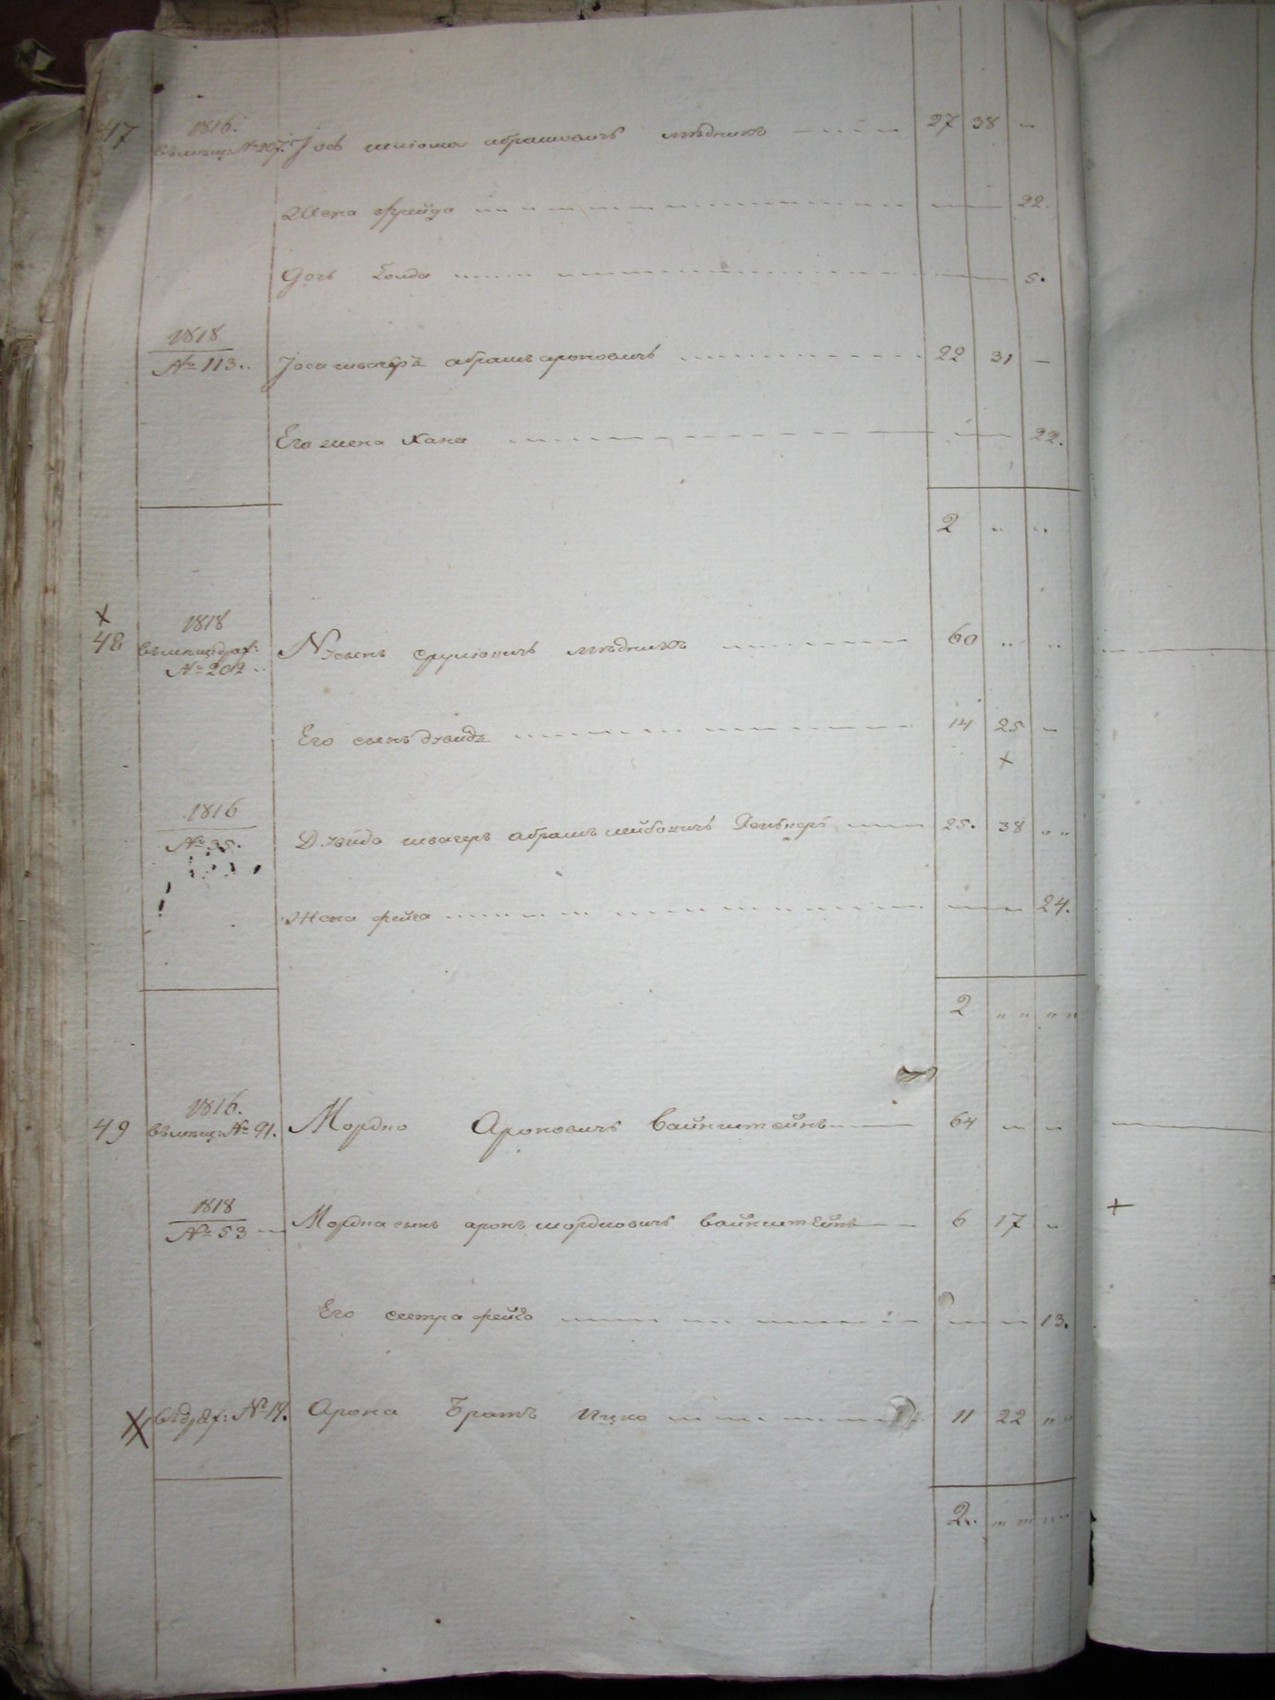 47 1816. въ мещ: № 207. Іось шліома абрамовичъ мѣдникъ 27 38
Жена фрейда 22.
Дочь 5.
1818 № 113. Іося швагеръ абрамъ ароновичъ 22 31 —
Его жена Хана 22.
2
×
48 1818 № 202 сруліовичъ мѣдникъ 60
Его сынъ дувидъ 14 25
×
1816 № 35. Дувида швагеръ абрамъ лейбовичъ 25. 38
Жена фейга 24.
2
49 1816. въ мещ: № 91. Мордко Ароновичъ вайнштейнъ 64
1818 № 53 Мордка сынъ аронъ мордковичъ вайнштейнъ 6 17
+
Его сестра фейга 13.
× № 18. Арона Братъ Ицко 11 22
2.